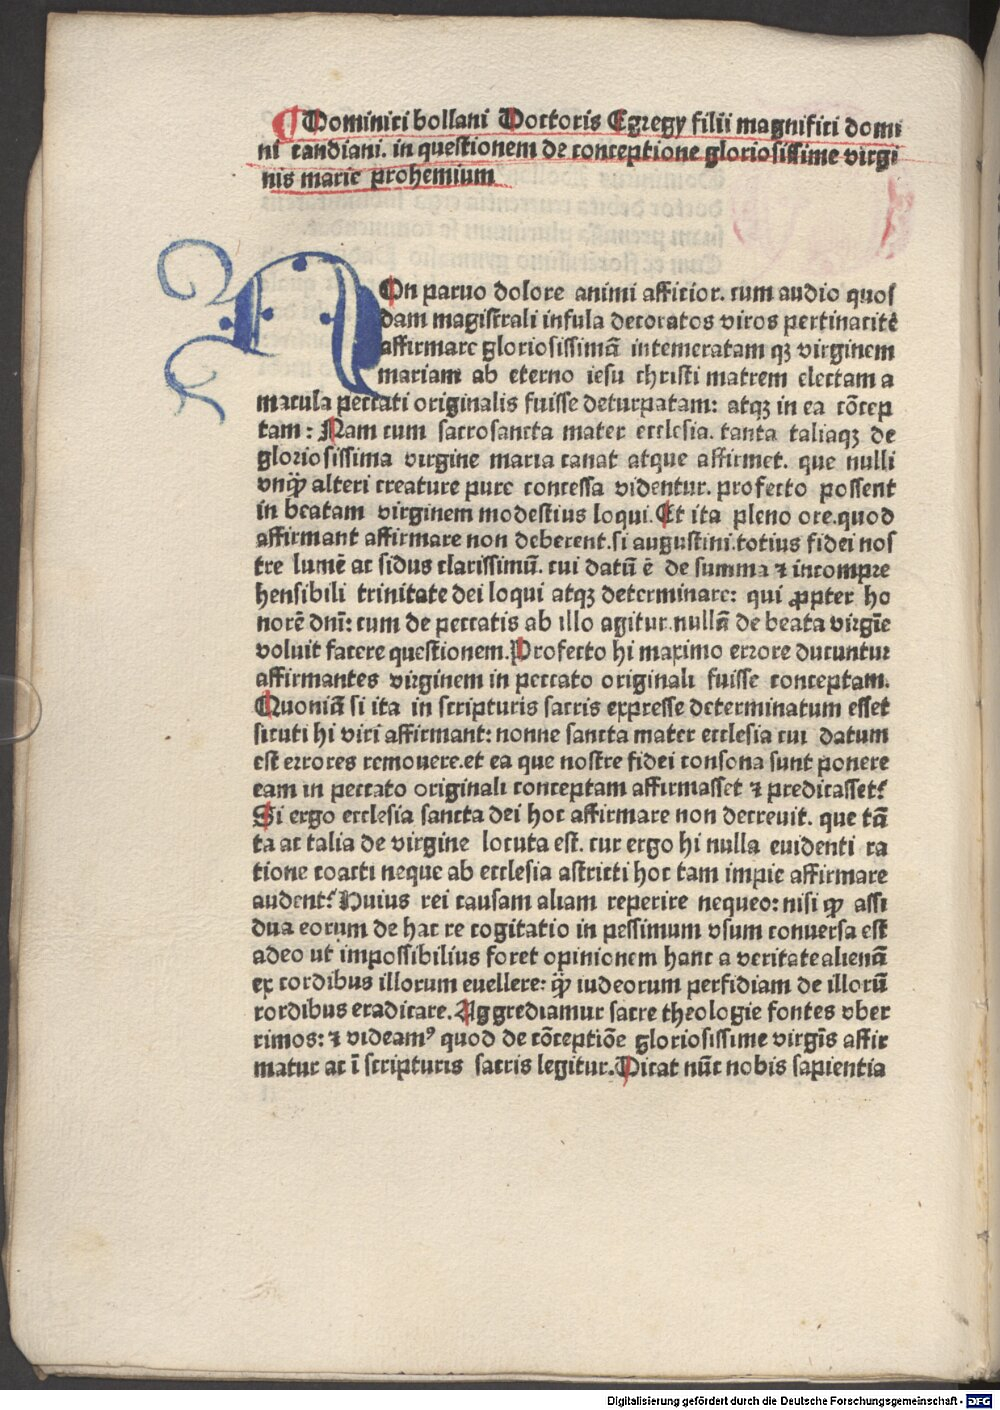 ¶ Dominici bollani Doctoris Egregy filii magnifici domi
ni candiani. in questionem de conceptione gloriosissime virgi
nis marie prohemium
NOn paruo dolore animi afficior. cum audio quos
dam magistrali infula decoratos viros pertinacitė
affirmare gloriosissimā intemeratam qꝫ virginem
mariam ab eterno iesu christi matrem electam a
macula peccati originalis fuisse deturpatam: atqꝫ in ea cōcep
tam: Nam cum sacrosancta mater ecclesia. tanta taliaqꝫ de
gloriosissima virgine maria canat atque affirmet. que nulli
vnqꝫ̄ alteri creature pure concessa videntur. profecto possent
in beatam virginem modestius loqui. Et ita pleno ore. quod
affirmant affirmare non deberent. si augustini. totius fidei nos
tre lumē ac sidus clarissimū. cui datū ē de summa ⁊ incompre
hensibili trinitate dei loqui atqꝫ determinare: qui ꝓpter ho
norē dnī: cum de peccatis ab illo agitur. nullā de beata virgīe
voluit facere questionem. Profecto hi maximo errore ducuntur
affirmantes virginem in peccato originali fuisse conceptam.
Quoniā si ita in scripturis sacris expresse determinatum esset
sicuti hi viri affirmant: nonne sancta mater ecclesia cui datum
est errores remouere. et ea que nostre fidei consona sunt ponere
eam in peccato originali conceptam affirmasset ⁊ predicasset?
Si ergo ecclesia sancta dei hoc affirmare non decreuit. que tā
ta ac talia de virgine locuta est. cur ergo hi nulla euidenti ra
tione coacti neque ab ecclesia astricti hoc tam impie affirmare
audent? Huius rei causam aliam reperire nequeo: nisi qꝫ̄ assi
dua eorum de hac re cogitatio in pessimum vsum conuersa est
adeo ut impossibilius foret opinionem hanc a veritate alienā
ex cordibus illorum euellere: qꝫ̄ iudeorum perfidiam de illorū
cordibus eradicare. Aggrediamur sacre theologie fontes vber
rimos: ⁊ videamꝰ quod de cōceptiōe gloriosissime virgīs affir
matur ac ī scripturis sacris legitur. Dicat nūc nobis sapientia
Digitalisierung gefördert durch die Deutsche Forschungsgemeinschaft - DFG